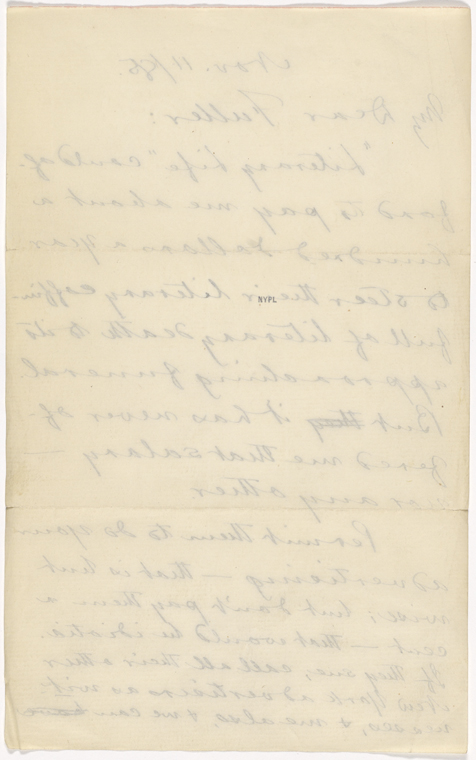 Nov. 11/85.
My Dear Fuller:
"Literary Life" could af-
ford to pay me about a
hundred dollars a year
to steer their literary coffin
NYPL
full of literary death to its
approaching funeral
But they it has never of-
fered me that salary —
or any other.
Permit them to do your
advertising — that is but
wise; but don't pay them a
cent — that would be idiotic.
If they sue, call all their other
New York advertisers as wit-
nesses, & me also, & we can